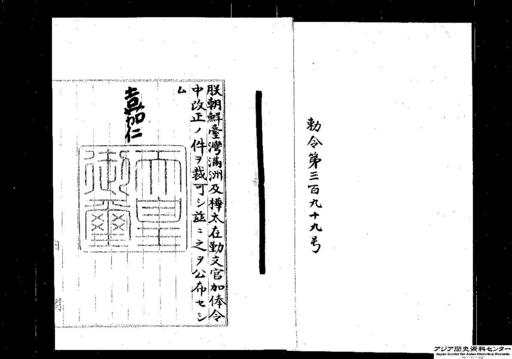 勅令第三百九十九号
朕朝鮮臺灣滿洲及樺太在勤文官加俸令
中改正ノ件ヲ裁可シ茲ニ之ヲ公布セシ
ム
嘉仁
天皇
御璽
アジア歴史資料センター
Japan Center for Asian Historical Records